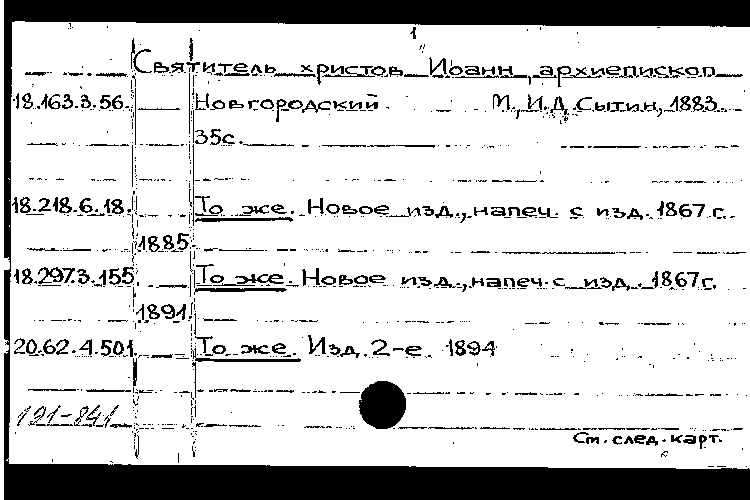 1
Святитель христов Иоанн, архиепископ
18.163.3.56. Новгородский. М., И.Д. Сытин, 1883.
35с.
18.218.6.18. То же. Новое изд., напеч. с изд. 1867 г.
1885
18.297.3.155 То же. Новое изд., напеч. с изд. 1867 г.
1891
20.62.4.501. То же. Изд. 2-е. 1894
191-841
См. след. карт.